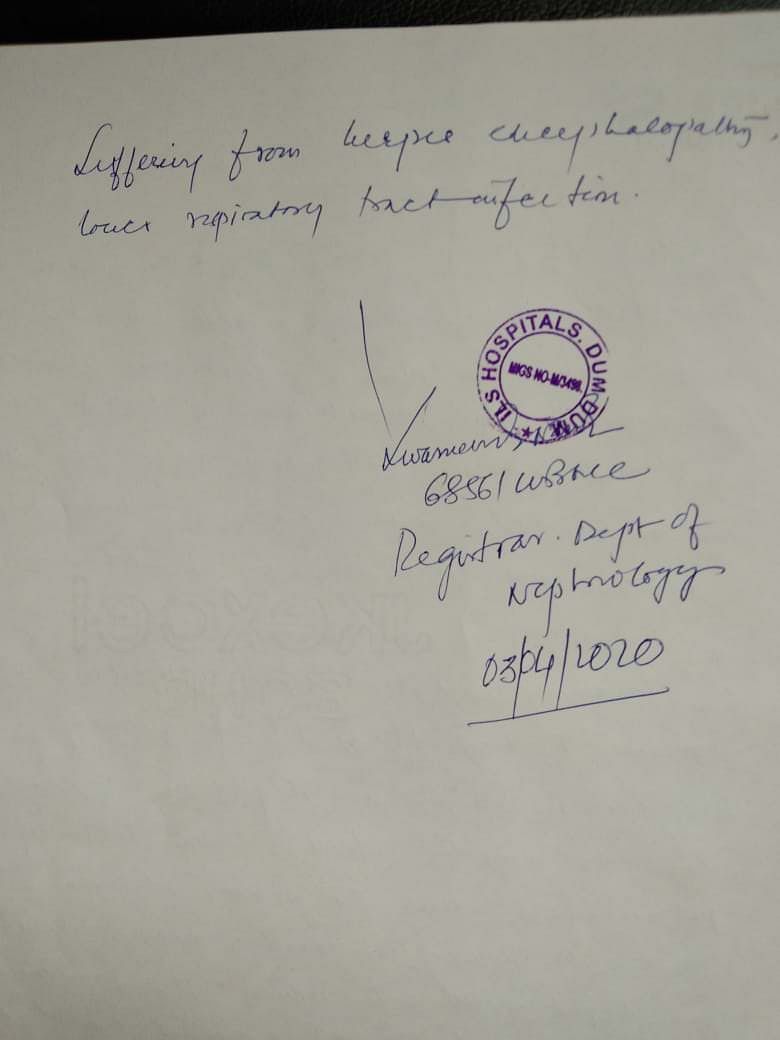 Suffering from herpes encephalopathy,
lower respiratory tract infection.
ILS HOSPITALS. DUM DUM
MIGS NO-M/3498.
68561 WBMC
Registrar. Dept of
Nephrology
03/04/2020